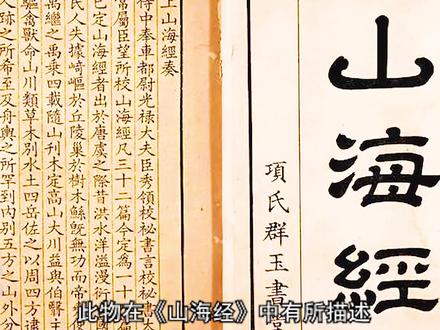 山海經
項氏群玉書
上山海經奏
侍中奉車都尉光祿大夫臣秀領校秘書言校秘書太
常屬臣望所校山海經凡三十二篇今定為一十
已定山海經者出於唐虞之際昔洪水洋溢漫衍
民人失據崎嶇於丘陵巢於樹木鯀既無功而帝
禹繼之禹乘四載隨山刊木定高山大川益與伯翳
驅禽獸命山川類草木別水土四岳佐之以周四方逮
人跡之所希至及舟輿之所罕到內別五方之山外分
此物在《山海经》中有所描述